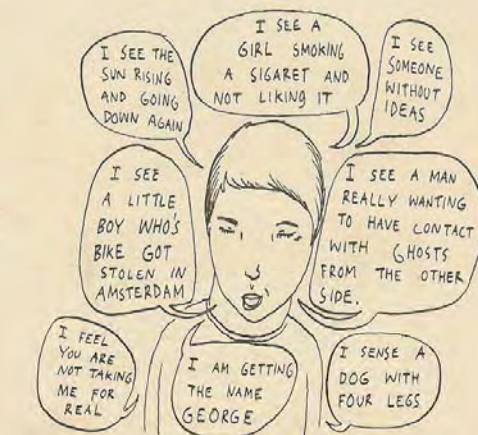 I SEE THE
SUN RISING
AND GOING
DOWN AGAIN
I SEE A
GIRL SMOKING
A SIGARET AND
NOT LIKING IT
I SEE
SOMEONE
WITHOUT
IDEAS
I SEE
A LITTLE
BOY WHO'S
BIKE GOT
STOLEN IN
AMSTERDAM
I SEE A MAN
REALLY WANTING
TO HAVE CONTACT
WITH GHOSTS
FROM THE OTHER
SIDE.
I FEEL
YOU ARE
NOT TAKING
ME FOR
REAL
I AM GETTING
THE NAME
GEORGE
I SENSE A
DOG WITH
FOUR LEGS